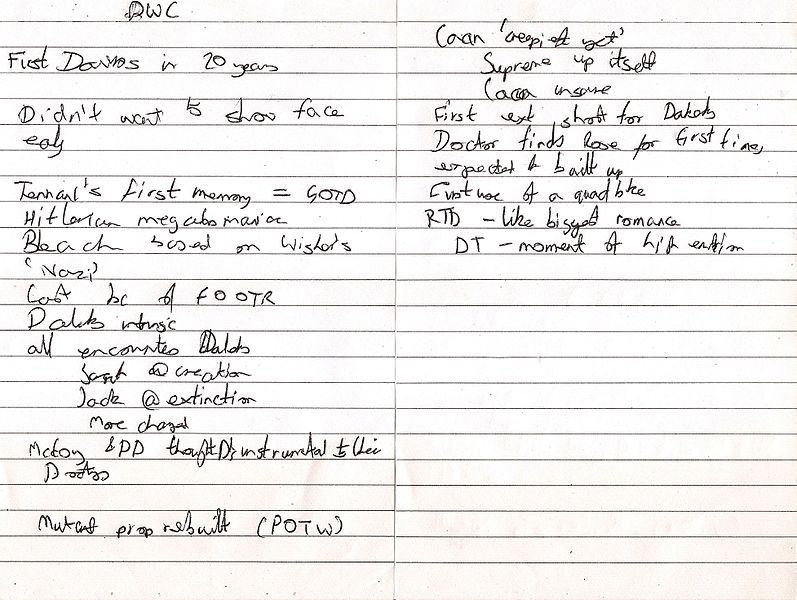 DWC
First Davros in 20 years
Didn't want to show face
early
Tennant's first memory = GOTD
Hitlerian megalomaniac
Bleach based on Wisher's
'Nazi'
Cast bc of FOOTR
Daleks intrinsic
all encounters Daleks
Sarah @ creation
Jack @ extinction
More charged
McCoy & PD thought D's instrumental to their
Doctors
Mutant prop rebuilt (POTW)
Caan 'creepiest yet'
Supreme up itself
Caan insane
First ext shoot for Daleks
Doctor finds Rose for first time,
expected & built up
First use of a quad bike
RTD - like biggest romance
DT - moment of high emotion